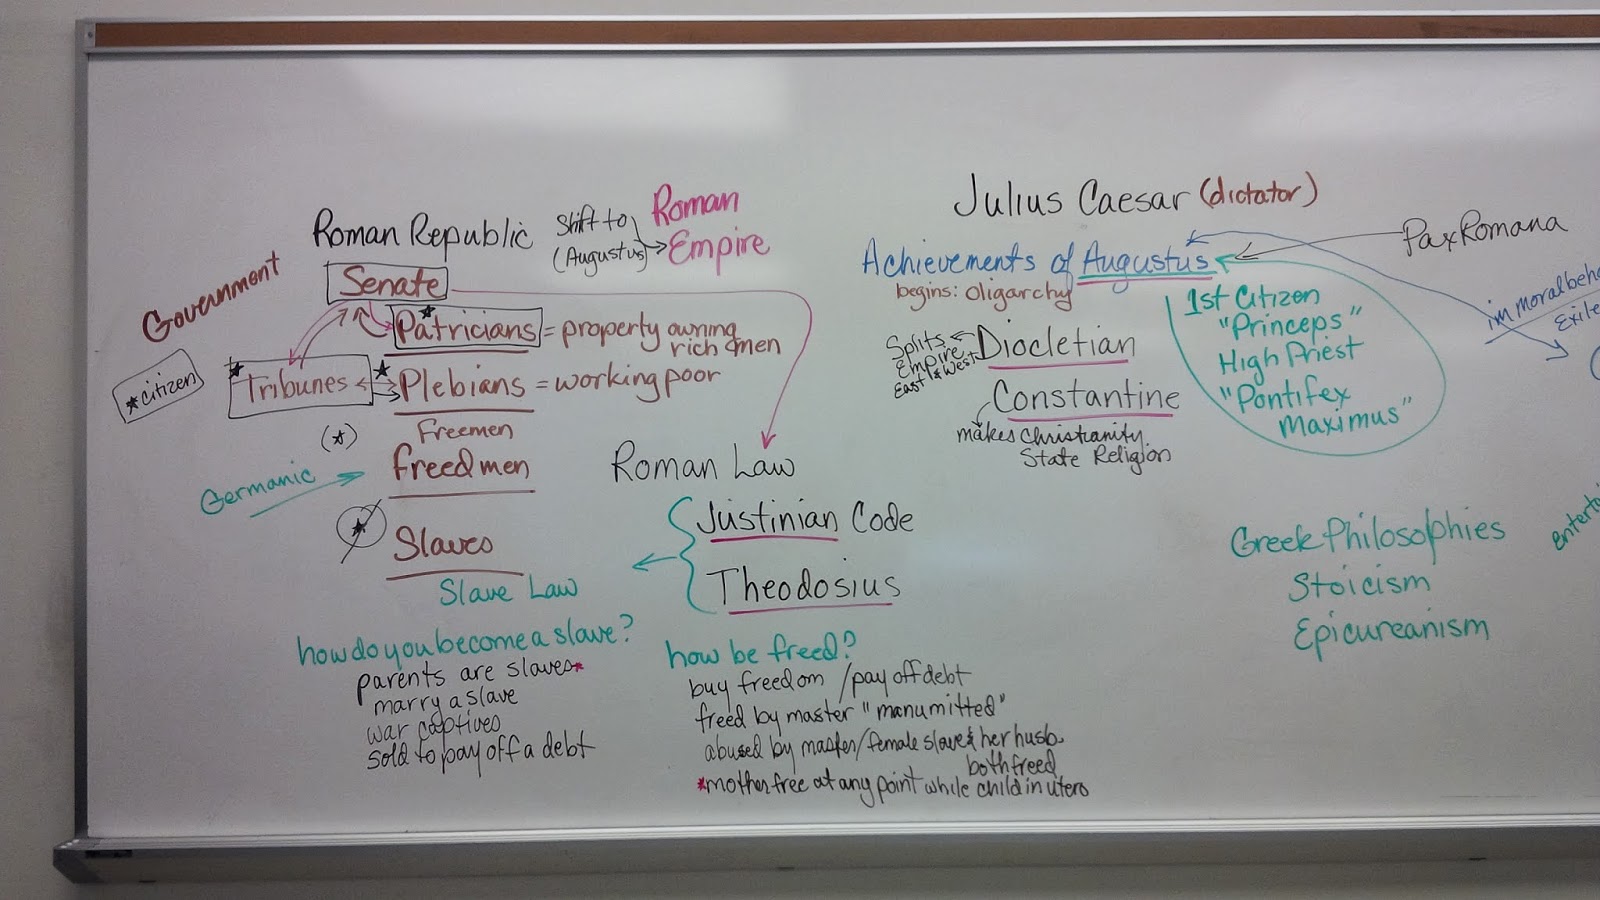 Roman Republic
shift to
(Augustus)
Roman
Empire
Government
Senate
Patricians = property owning
rich men
*citizen
Tribunes
Plebians = working poor
Freemen
(*)
freedmen
Germanic
Slaves
Slave Law
Roman Law
Justinian Code
Theodosius
how do you become a slave?
parents are slaves*
marry a slave
war captives
sold to pay off a debt
how be freed?
buy freedom /pay off debt
freed by master "manumitted"
abused by master/female slave & her husb
both freed
*mother free at any point while child in utero
Julius Caesar (dictator)
Achievements of Augustus
begins: oligarchy
Pax Romana
1st Citizen
"Princeps"
High Priest
"Pontifex
Maximus"
Splits
Empire
East & West
Diocletian
Constantine
makes Christianity
State Religion
immoral beha
Exile
Greek Philosophies
Stoicism
Epicureanism
Enterta